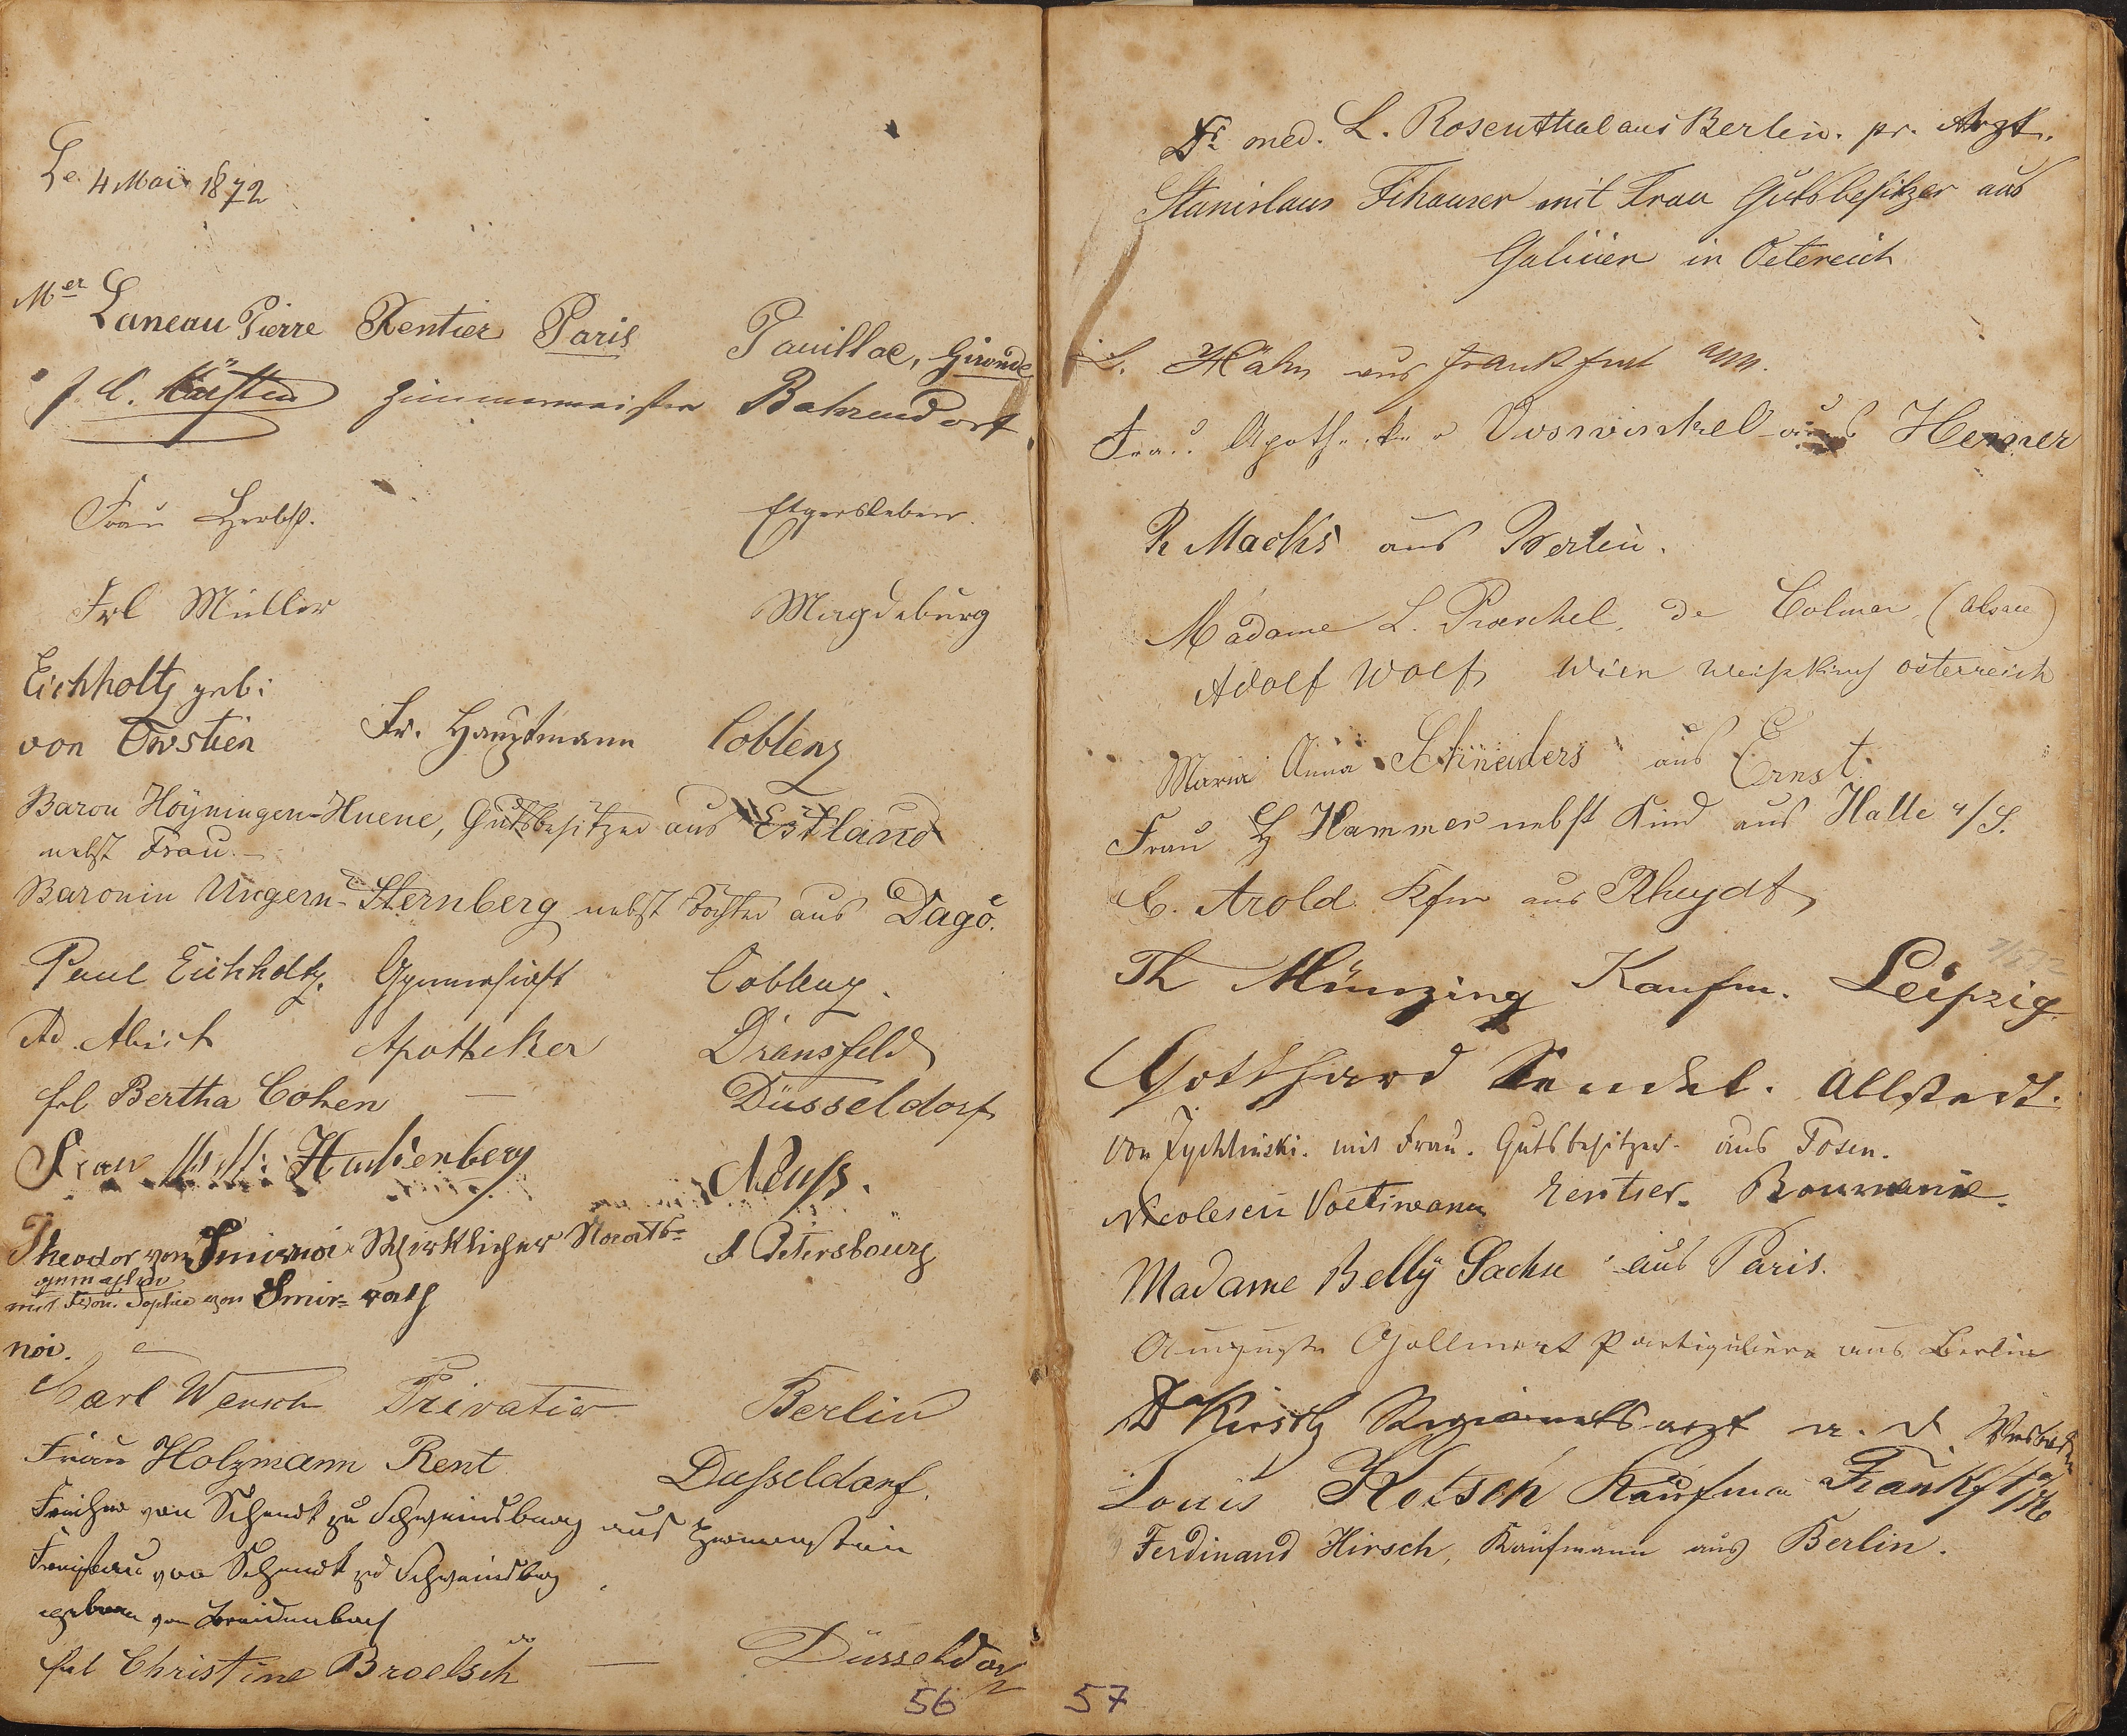 Le 4 Mai 1872
Mer Laneau Pierre Rentier Paris Pauillac, Gironde
J. C. Zimmermeister Bahrendorf
Frau Herbst. Etgersleben.
Frl Müller Magdeburg
Eichholtz geb:
von Owstien Fr. Hauptmann Coblenz
Baron Hoÿningen-Huene, Gutsbesitzer aus Estland
nebst Frau. —
Baronin Ungern-Sternberg nebst Tochter aus Dagö.
Paul Eichholtz. Gymnasiast Coblenz.
Ad. Apotheker Dransfeld
frl Bertha Cohen — Düsseldorf
Frau Neuss.
Theodor von Smirnoi Wirklicher Staats= St Petersbourg
gemahlin
mit Sophie von Smir= rath
noi.
Carl Wensch Privatier Berlin
Frau Holzmann Rent Dusseldorf.
Freiherr von Schenck zu Schweinsberg aus Hermenstein
Freifrau von Schenck zu Schweinsberg
geborne von Breidenbach
frl Christine Broelsch — Düsseldorf
56
Dr med. L. Rosenthal aus Berlin. pr. Arzt.
Stanislaus mit Frau Gutsbesitzer aus
Galicien in Oetereich
L. Hahn aus Frankfurt a/M.
Frau Apotheker Overwinkel aus Hemer
R Macks aus Berlin.
Madame L. de Colmar (Alsace)
Adolf Wolf Wien österreich
Maria Anna Schneiders aus Ernst.
Frau H Hammer nebst Kind aus Halle a/S.
C. Arold Kfm aus Rheydt
Th Münzing Kaufm. Leipzig.
Gotthard Allstedt.
von Zychlinski. mit Frau. Gutsbesitzer. aus Posen.
Nicolescu rentier. Roumanie.
Madame Bellÿ Sachse aus Paris.
Auguste Gollmert Partiguliere aus Berlin
Dr Kirsch Regimentsarzt a. D. Wiesbaden
Louis Hotsch Kaufman Frankft a/M
Ferdinand Hirsch, Kaufmann aus Berlin.
57